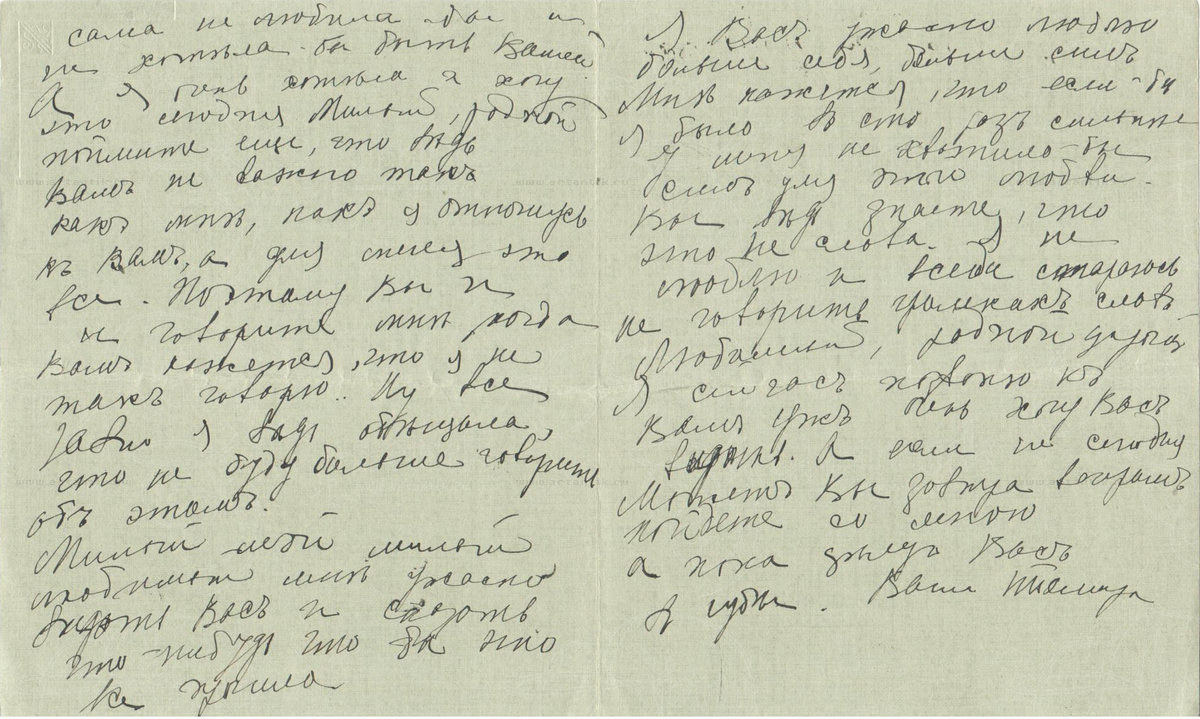 сама не любила бы и
не хотѣла-бы быть Вашей
А я очень хотѣла и хочу
это сегодня Милый, родной
поймите еще, что вѣдь
Вамъ не важно такъ
какъ мнѣ, какъ я отношусь
къ Вамъ, а для меня это
все. Поэтому Вы и
не говорите мнѣ когда
Вамъ кажется, что я не
такъ говорю. Ну все
равно я вѣдь обѣщала,
что не буду больше говорить
объ этомъ.
Милый мой милый
любимый мнѣ ужасно
видѣть Васъ и сказать
что-нибудь что бы это
все прошло
Я Васъ ужасно люблю
больше себя, больше силъ
Мнѣ кажется, что если-бы
я было въ сто разъ сильнѣе
у меня не хватило-бы
силъ для этой любви.
Вы вѣдь знаете, что
это не слова. Я не
люблю и всегда стараюсь
не говорить громкихъ словъ
Любимый, родной
Я сейчасъ позвоню къ
Вамъ ужъ очень хочу Васъ
видѣть. А если не сегодня
Можетъ Вы завтра вечеромъ
пойдете со мною
а пока цѣлую Васъ
въ губы. Ваша